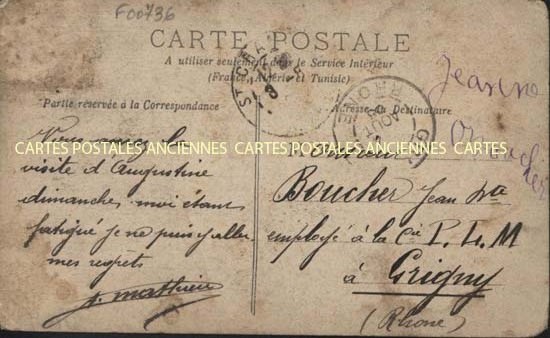 F00736
CARTE POSTALE
A utiliser seulement dans le Service Intérieur
(France, Algérie et Tunisie)
Partie réservée à la Correspondance
Adresse du Destinataire
Vous avez la
visite d'Augustine
dimanches moi étant
fatigué je ne puis y aller
mes regrets
Monsieur
Boucher Jean Bte
employé à la Cie P. L. M
à Grigny
(Rhône)
Jeanne
CARTES POSTALES ANCIENNES CARTES POSTALES ANCIENNES CARTES
RHONE